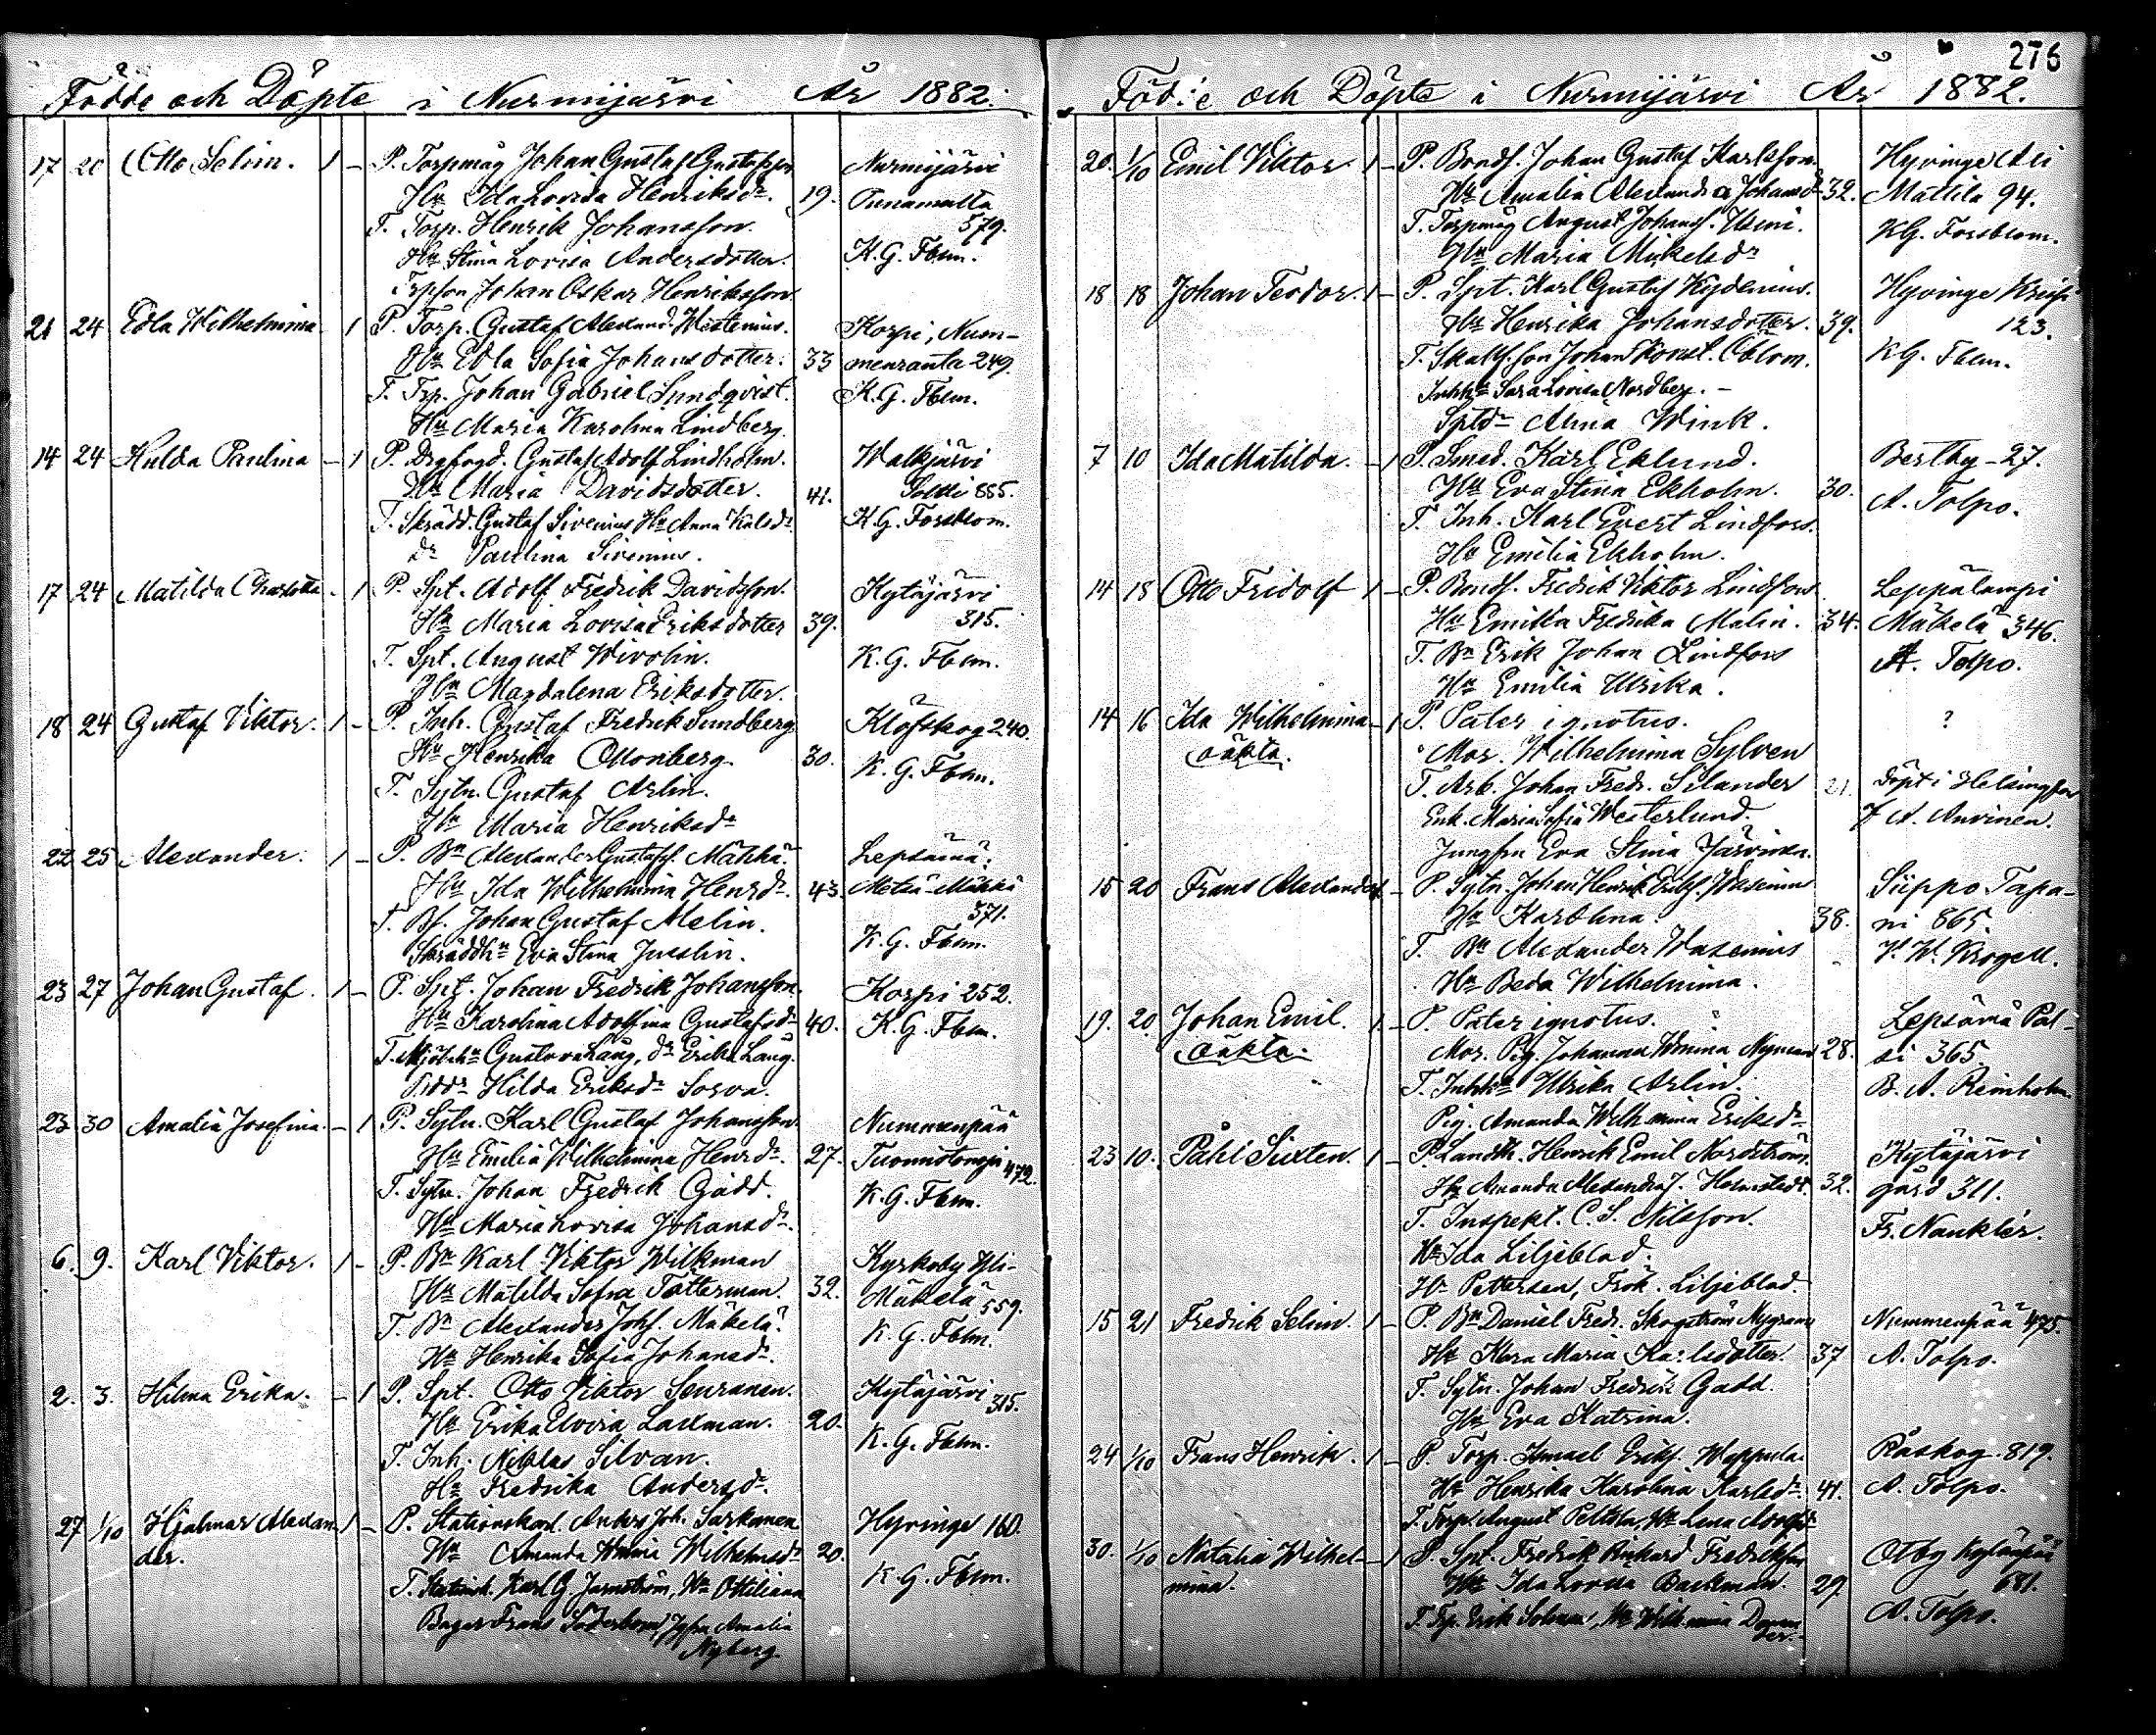 276
Födde och Döpte i Nurmijärvi År 1882.
17 20 Otto Selim. 1 – P. Torpmåg Johan Gustaf Gustafsson Nurmijärvi
Hu Ida Lovisa Henriksdr. 19.
T. Torp. Henrik Johansson. 579.
Hu Stina Lovisa Andersdotter. K.G. Fblm.
Trpson Johan Oskar Henriksson.
21 24 Edla Wilhelmina – 1 P. Torp. Gustaf Alexand. Korpi, Num-
Hu Edla Sofia Johansdotter. 33 menranta 249.
T. Trp. Johan Gabriel Sundqvist. K.G. Fblm.
Hu Maria Karolina Lindberg.
14 24 Hulda Paulina – 1 P. Drgfogd. Gustaf Adolf Lindholm. Walkjärvi
Hu Maria Davidsdotter. 41. 885.
T. Skrädd. Gustaf Sirenius Hu Anna K.G. Forsblom.
dr Paulina Sirenius.
17 24 Matilda Charlotta – 1 P. Spt. Adolf Fredrik Davidsson. Kytäjärvi
Hu Maria Lovisa Eriksdotter 39. 315.
T. Spt. August Wivolin. K.G. Fblm.
Hu Magdalena Eriksdotter.
18 24 Gustaf Viktor. 1 – P. Inh. Gustaf Fredrik Sundberg Klöfskog 240.
Hu Henrika Ottonberg. 30. K.G. Fblm.
T. Sytn. Gustaf Arlin.
Hu Maria Henriksdr
22 25 Alexander. 1 – P. Bn Alexander Gustafss. Lepsämä.
Hu Ida Wilhelmina Henrdr. 43. 371.
T. Bs. Johan Gustaf Melin. K.G. Fblm.
Skräddhu Eva Stina Jusslin.
23 27 Johan Gustaf. 1 – P. Spt. Johan Fredrik Johansson. Korpi 252.
Hu Karolina Adolfina Gustafsdr 40. K.G. Fblm.
T. Gustava Lang, dr Erika Lang.
Hilda Eriksdr Sorva.
23 30 Amalia Josefina. – 1 P. Sytn. Karl Gustaf Johansson. Nummenpää
Hu Emilia Wilhelmina Henrdr. 27. 472.
T. Sytn. Johan Fredrik Gadd. K.G. Fblm.
Hu Maria Lovisa Johansdr.
6. 9. Karl Viktor. 1 – P. Bn Karl Viktor Wilkman Kyrkoby Yli-
Hu Matilda Sofia Totterman. 32. Mäkelä 559.
T. Bn Alexander Johs. Mäkelä. K.G. Fblm.
Hu Henrika Sofia Johansdr.
2. 3. Hilma Erika. – 1 P. Spt. Otto Viktor Seuranen. Kytäjärvi 315.
Hu Erika Elvira Laxman. 20. K.G. Fblm.
T. Inh. Niklas Silvan.
Hu Fredrika Andersdr.
27 1/10 Hjalmar Alexan- 1 – P. Stationskarl. Anders Joh. Sarkanen Hyvinge 160.
der. Hu Amanda Wilhelmsdr 20. K.G. Fblm.
T. Karl G. Jarnström, Hu Ottiliana
Bagar Frans Söderbom, Jgfru Amalia
Nyberg.
Födde och Döpte i Nurmijärvi År 1882.
20. 1/10 Emil Viktor. 1 – P. Bonds. Johan Gustaf Karlsson. Hyvinge
Hu Amalia Alexandra Johansdr 32. Mattila 94.
T. Torpmåg August Johanss. K.G. Forsblom.
Hu Maria Mickelsdr
18 18 Johan Teodor. 1 – P. Spt. Karl Gustaf Hyvinge
Hu Henrika Johansdotter. 39. 123.
T. Johan Konst. K.G. Fblm.
Inhhu Sara Lovisa Nordberg. –
Sptdr Alma Wink.
7 10 Ida Matilda. – 1 P. Smed. Karl Eklund. Berthy – 27.
Hu Eva Stina Ekholm. 30. A. Tolpo.
T. Inh. Karl Evert Lindfors.
Hu Emilia Ekholm.
14 18 Otto Fridolf 1 – P. Bonds. Fredrik Viktor Lindfors Leppälampi
Hu Emilia Fredrika Malin. 34. Mäkelä 346.
T. Bn Erik Johan Lindfors A. Tolpo.
Hu Emilia Ulrika.
14 16 Ida Wilhelmina – 1 P. Pater ignotus. ?
oäkta. Mor. Wilhelmina Sylven
T. Arb. Johan Fredr. Silander 21. Döpt i Helsingfors
Enk. Maria Sofia Westerlund. A. Anvinen.
Jungfru Eva Stina Järvinen.
15 20 Frans Alexander 1 – P. Sytn. Johan Henrik Wasenius Siippo Tapa-
Hu Karolina. 38. ni 865.
T. Bn Alexander Wasenius Krogell.
Hu Beda Wilhelmina.
19. 20. Johan Emil. 1 – P. Pater ignotus. Lepsämä Pal-
oäkta. Mor. Pig. Johanna Nyman 28. si 365.
T. Inhhu Ulrika Arlin. B. A. Reinholm.
Pig. Amanda Wilhmina Eriksdr
23 10. Påhl Sixten. 1 – P. Landth. Henrik Emil Nordström. Kytäjärvi
Hu Amanda Alexandra J. Holmstedt. 32. gård 311.
T. Inspekt. C. S. Nilsson. Fr. Nanklér.
Hu Ida Liljeblad.
Hr Pettersen, Frök. Liljeblad.
15 21 Fredrik Selim. 1 – P. Bn Daniel Fredr. Skogström Nygran Nummenpää 475.
Hu Klara Maria Karlsdotter. 37 A. Tolpo.
T. Sytn. Johan Fredrik Gadd.
Hu Eva Katrina.
24 1/10 Frans Henrik. 1 – P. Torp. Ismael Eriks. Weppula Råskog. 819.
Hu Henrika Karolina Karlsdr. 41. A. Tolpo.
T. Torp. August Peltola, Hu Lena
30. 1/10 Natalia Wilhel- – 1 P. Spt. Fredrik Rickard Fredriksson Otby
mina. Hu Ida Lovisa Backman. 29. 681.
T. Trp. Erik Hu Wilhmina A. Tolpo.